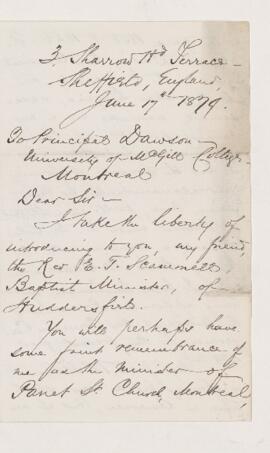 3, Sharrow Hd Terrace -
Sheffield, England,
June 17th 1879.
To Principal Dawson -
University of McGill College -
Montreal
Dear Sir -
I take the liberty of
introducing to you, my friend
the Rev. E. T. Scammell,
Baptist Minister, of
Huddersfield.
You will perhaps have
some faint remembrance of
me as the minister of
Panet St Church, Montreal,